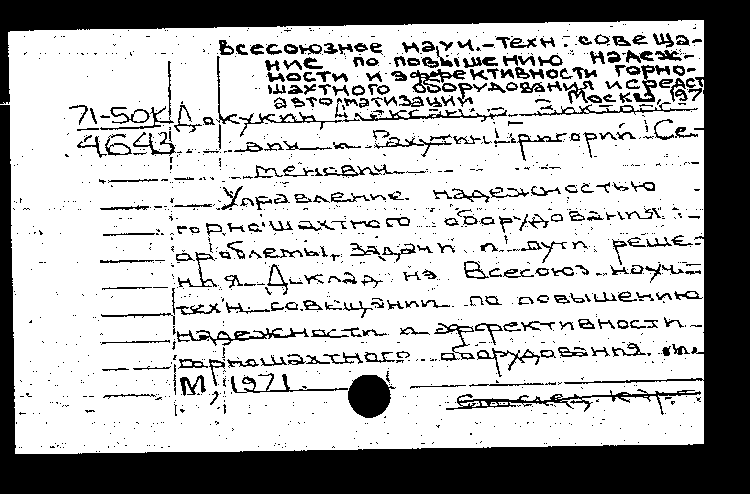 Всесоюзное научн.-техн. совеща-
ние по повышению надеж-
ности и эффективности горно-
шахтного оборудования и средст
автоматизации Москва, 197
71-50К Докукин, Александр Викторо-
4643 вич и Рахутин Григорий Се-
менович
Управление надежностью
горношахтного оборудования:
проблемы, задачи и пути реше-
ния Доклад на Всесоюз. научн.-
техн. совещании по повышению
надежности и эффективности
горношахтного оборудования
М, 1971.
См. след. карт.